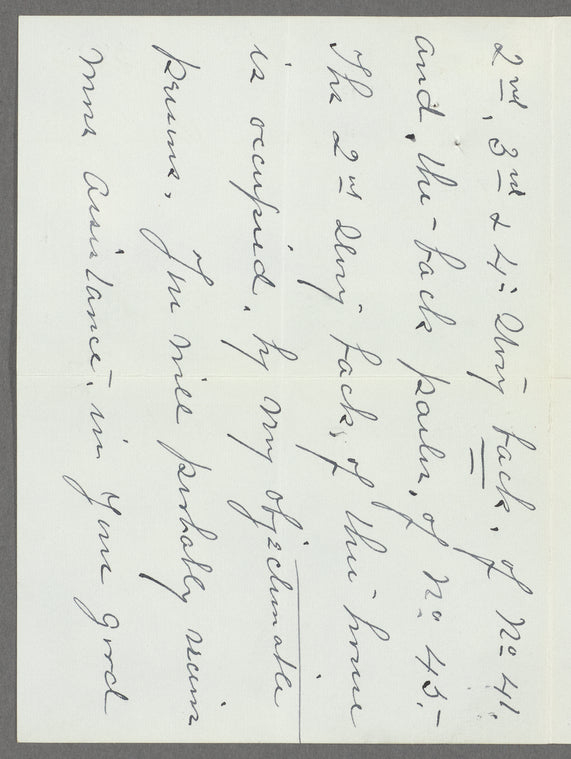 2nd, 3rd & 4th Story back, of No 41.
and, the back parlor, of No 45.
The 2nd Story back, of this house
is occupied, by my objectionable
persons. You will probably
more assistance, in your good